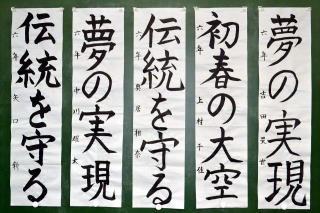 夢の実現
六年 吉田
初春の大空
六年 上村千佳
伝統を守る
六年
夢の実現
六年 中川雄太
伝統を守る
六年 矢口